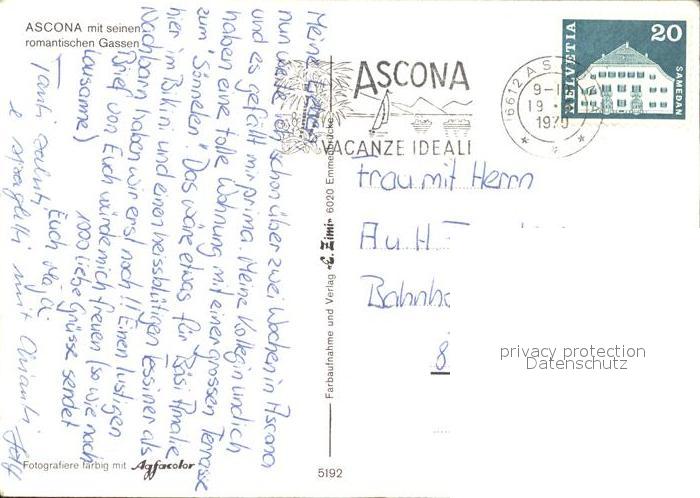 ASCONA mit seinen
romantischen Gassen
Meine Lieben
nun weile ich schon über zwei Wochen in Ascona
und es gefällt mir prima. Meine Kollegin und ich
haben eine tolle Wohnung mit einer grossen Terrasse
zum "Sönnelen". Das wäre etwas für Rösi Amalie
hier im Bikini und einen heissblütigen Tessiner als
Nachbarn haben wir erst noch!! Einen lustigen
Brief von Euch würde mich freuen (so wie nach
Lausanne)
1000 liebe Grüsse sendet
Euch Maja
Tanti saluti
e spaghetti mit Chianti
Fotografiere farbig mit Agfacolor
Farbaufnahme und Verlag E. Zimi 6020 Emmenbrücke
5192
ASCONA
VACANZE IDEALI
6612 AS
9-1
19
197
HELVETIA
20
SAMEDAN
Frau mit Herrn
Au H
Bahnho
8
privacy protection
Datenschutz